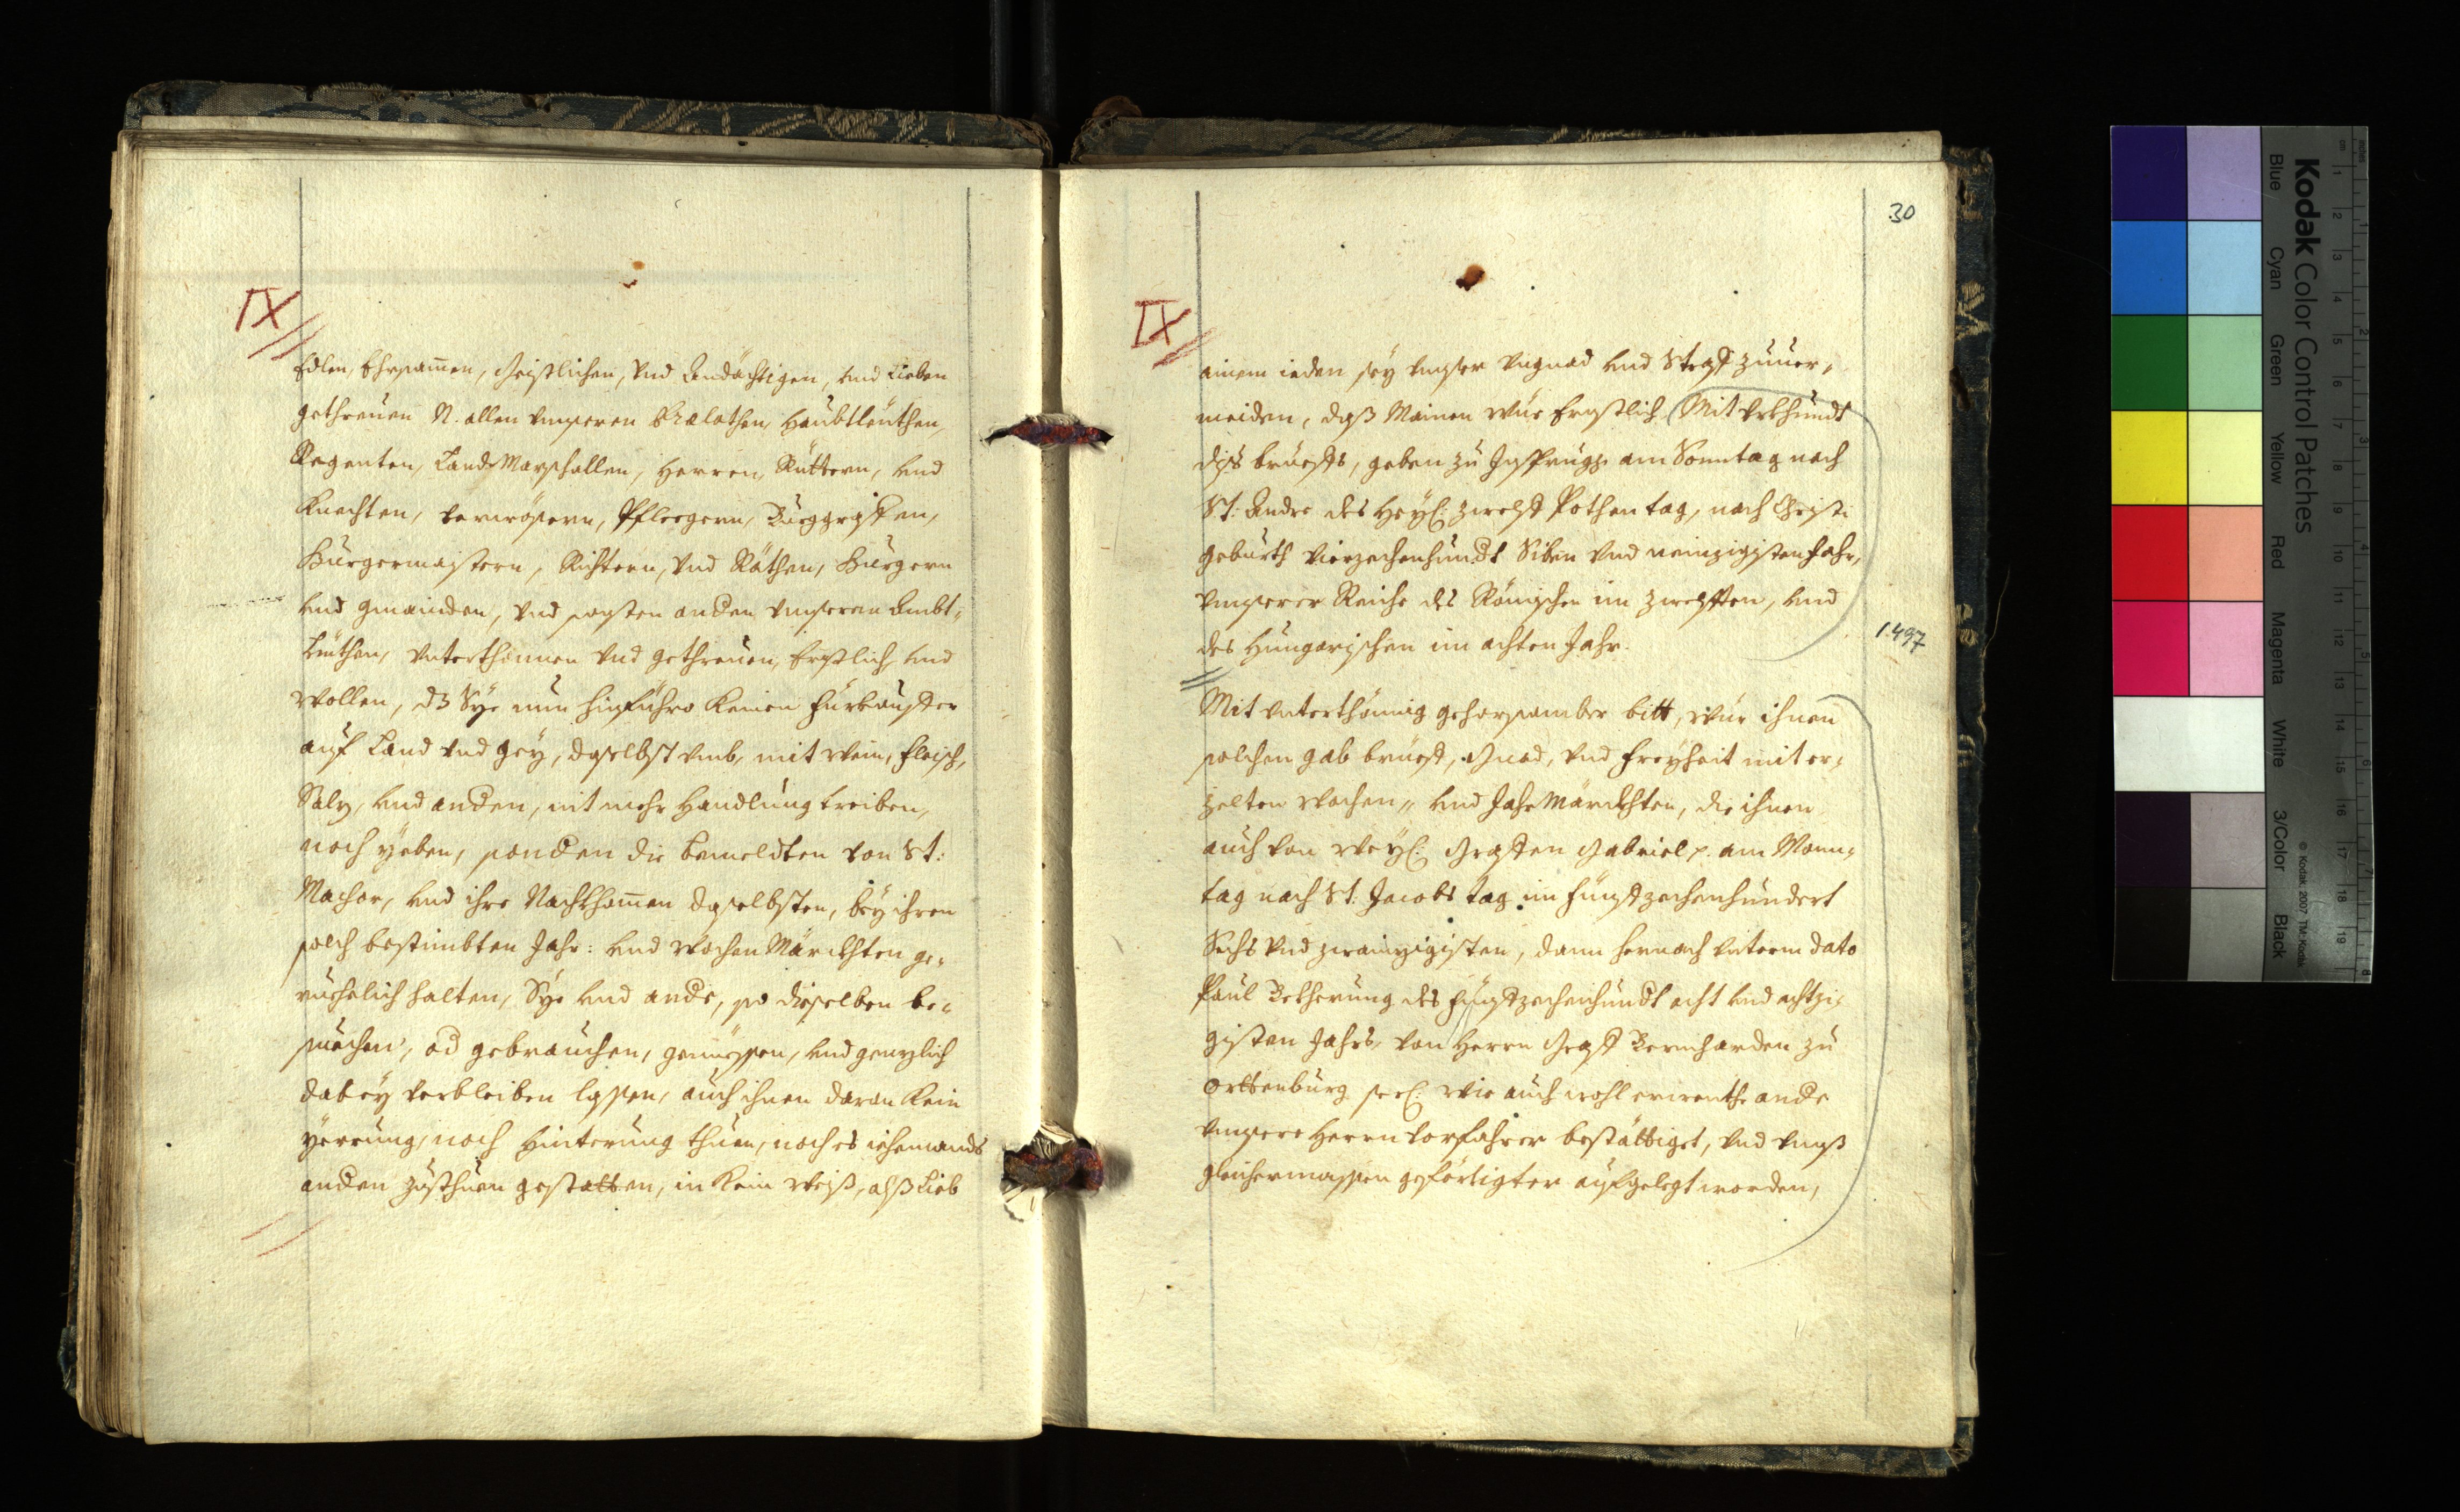 IX
Edlen, Ehrsamen, Geistlichen, Vnd Andächtigen, vnd Lieben
gethreuen N. allen vnseren Prælathen, Haubtleuthen,
Regenten, LandtsMarschallen, Herren, Rüttern, vnd
Knechten, verwösern, Pfleegern, Burggrafen,
Burgermaistern, Richtern, Vnd Räthen, Burgern
vnd gmainden, Vnd sonsten anden vnseren Ambt-
Leüthen, Vnterthannen Vnd gethreuen, Ernstlich vnd
wollen, dz Sye nun hinfuhro keinen Fürkauffer
auf Land Vnd Gey, daselbst vmb, mit wein, Fleisch,
Salz, vnd anden, nit mehr Handlung treiben,
noch yeben, sonden die bemeldten von St:
Machor, vnd ihre Nachkhomen daselbsten, bey ihren
solch bestimbten Jahr: vnd wochen Märckhten ge-
ruehelich halten, Sye vnd ande, so dieselben be-
suechen, od gebrauchen, genüessen, vnd genzlich
dabey verbleiben lassen, auch ihnen daran kein
yrrung, noch Hinterung thuen, noch es iehemands
anden zuthuen gestatten, in kein weiß, alß Lieb
30
IX
ainem ieden sey vnser Vngnad vnd Straff zuuer-
meiden, daß Mainen wür Ernstlich. Mit Vrkhundt
diß brüeffs, geben zu Jnsprugg am Sonntag nach
St: Andre des Heyl: zwelff Pothen tag, nach Christi
geburth Vierzechenhundt Siben Vnd neinzigisten Jahr,
vnserer Reiche des Römischen im zwelfften, vnd
des Hungarischen im achten Jahr.
1497
Mit Vnterthänig gehorsamber bitt, wür ihnen
solchen gab brüeff, Gnad, Vnd Freyheit mit er-
zelten wochen„ vnd Jahr Märckhten, die ihnen
auch von weyl: Graffen Gabriel p. am Monn-
tag nach St: Jacobs tag im Fünffzechenhundert
Sechs Vnd zwainzigisten, dann hernach Vnterm dato
Paul Bekherung des Fünffzechenhundt acht vnd achtzi-
gisten Jahrs, von Herrn Graff Bernharden zu
Orttenburg seel: wie auch wohl erwenthe ande
vnsere Herrn Vorfahrer bestättiget, Vnd vnß
gleichermassen gefärtigter aufgelegt worden,